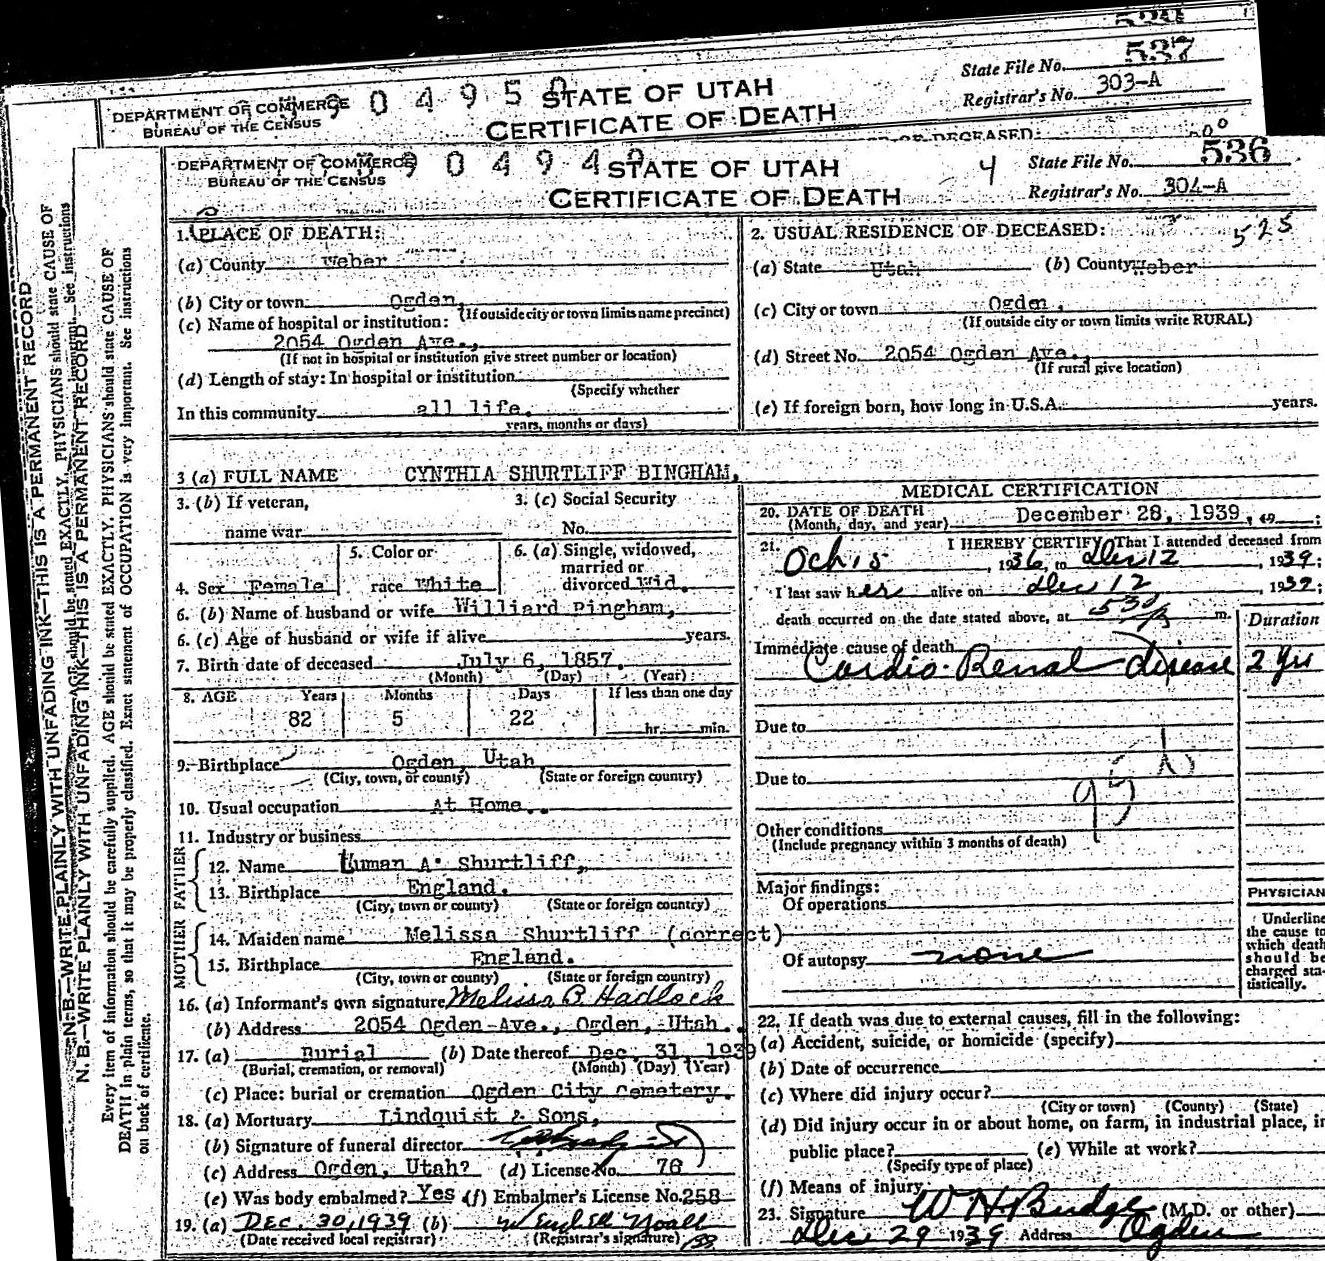 534
537
State File No.
303-A
Registrar's No.
DEPARTMENT OF COMMERCE
BUREAU OF THE CENSUS
9 0 4 9 5 0
STATE OF UTAH
CERTIFICATE OF DEATH
OF DECEASED:
DEPARTMENT OF COMMERCE
BUREAU OF THE CENSUS
9 0 4 9 4 9
STATE OF UTAH
CERTIFICATE OF DEATH
4
State File No. 536
Registrar's No. 304-A
N. B.—WRITE PLAINLY WITH UNFADING INK—THIS IS A PERMANENT RECORD
N. B.—WRITE PLAINLY WITH UNFADING INK—THIS IS A PERMANENT RECORD
Every item of information should be carefully supplied. AGE should be stated EXACTLY. PHYSICIANS should state CAUSE OF
DEATH in plain terms, so that it may be properly classified. Exact statement of OCCUPATION is very important. See instructions
on back of certificate.
1. PLACE OF DEATH:
(a) County Weber
(b) City or town Ogden,
(If outside city or town limits name precinct)
(c) Name of hospital or institution:
2054 Ogden Ave.,
(If not in hospital or institution give street number or location)
(d) Length of stay: In hospital or institution
(Specify whether
In this community all life.
years, months or days)
2. USUAL RESIDENCE OF DECEASED: 525
(a) State Utah (b) County Weber
(c) City or town Ogden,
(If outside city or town limits write RURAL)
(d) Street No. 2054 Ogden Ave.,
(If rural give location)
(e) If foreign born, how long in U.S.A. years.
3 (a) FULL NAME CYNTHIA SHURTLIFF BINGHAM,
3. (b) If veteran,
name war
3. (c) Social Security
No.
4. Sex Female
5. Color or
race White
6. (a) Single, widowed,
married or
divorced Wid.
6. (b) Name of husband or wife Williard Bingham,
6. (c) Age of husband or wife if alive years.
7. Birth date of deceased July 6, 1857.
(Month) (Day) (Year)
8. AGE Years Months Days If less than one day
82 5 22 hr. min.
9. Birthplace Ogden, Utah
(City, town, or county) (State or foreign country)
10. Usual occupation At Home.
11. Industry or business
FATHER
12. Name Luman A. Shurtliff,
13. Birthplace England.
(City, town or county) (State or foreign country)
MOTHER
14. Maiden name Melissa Shurtliff (correct)
15. Birthplace England.
(City, town or county) (State or foreign country)
16. (a) Informant's own signature Melissa B. Hadlock
(b) Address 2054 Ogden Ave., Ogden, Utah.
17. (a) Burial (b) Date thereof Dec. 31, 1939
(Burial, cremation, or removal) (Month) (Day) (Year)
(c) Place: burial or cremation Ogden City Cemetery.
18. (a) Mortuary Lindquist & Sons,
(b) Signature of funeral director
(c) Address Ogden, Utah? (d) License No. 76
(e) Was body embalmed? Yes (f) Embalmer's License No. 258
19. (a) DEC. 30, 1939 (b)
(Date received local registrar) (Registrar's signature)
MEDICAL CERTIFICATION
20. DATE OF DEATH
(Month, day, and year) December 28, 1939, 19 ;
21. I HEREBY CERTIFY That I attended deceased from
Oct 15, 1936, to Dec 12, 1939;
I last saw her alive on Dec 12 1939;
death occurred on the date stated above, at 530 m.
Duration
Immediate cause of death
Cardio-Renal disease 2 yrs
Due to
Due to
95
Other conditions
(Include pregnancy within 3 months of death)
Major findings:
Of operations
Of autopsy none
PHYSICIAN
Underline
the cause to
which death
should be
charged sta-
tistically.
22. If death was due to external causes, fill in the following:
(a) Accident, suicide, or homicide (specify)
(b) Date of occurrence
(c) Where did injury occur?
(City or town) (County) (State)
(d) Did injury occur in or about home, on farm, in industrial place, in
public place? (e) While at work?
(Specify type of place)
(f) Means of injury
23. Signature W H Budge (M.D. or other)
Dec 29 1939 Address Ogden